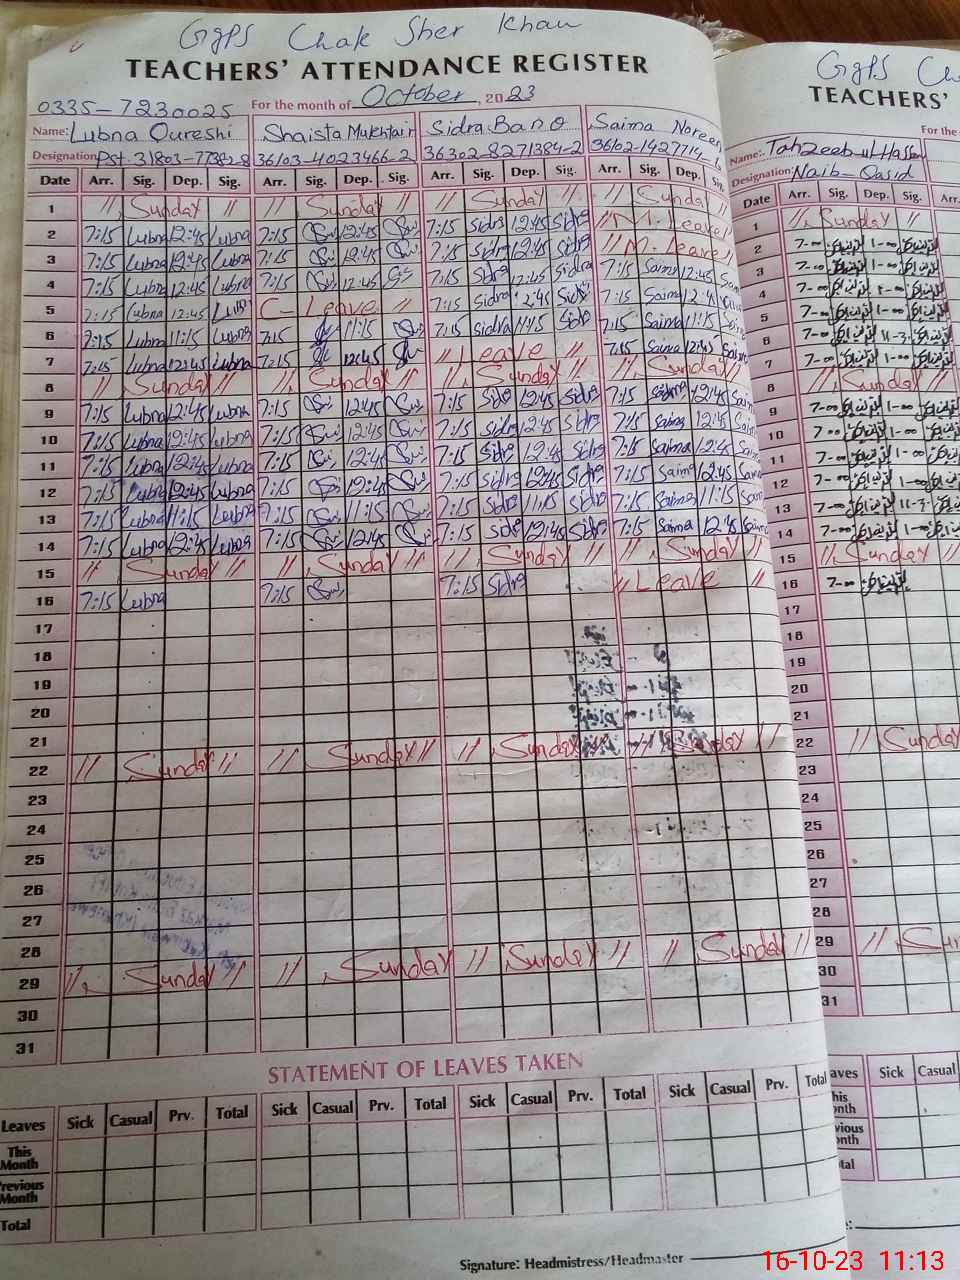 GgPS Chak Sher Khan
TEACHERS' ATTENDANCE REGISTER
0335-7230025 For the month of October, 2023
Name: Lubna Qureshi Shaista Mukhtair Sidra Bano Saima Noreen
Designation Pst 36103-4023466-2 36302-8271384-2
Date Arr. Sig. Dep. Sig. Arr. Sig. Dep. Sig. Arr. Sig. Dep. Sig. Arr. Sig. Dep. Sig.
1 // Sunday // // Sunday // // Sunday // // Sunday
2 7:15 Lubna 12:45 Lubna 7:15 12:45 7:15 Sidra 12:45 Sidra // M. Leave //
3 7:15 Lubna 12:45 Lubna 7:15 12:45 7:15 Sidra 12:45 Sidra // M. Leave //
4 7:15 Lubna 12:45 Lubna 7:15 12:45 7:15 Sidra 12:45 Sidra 7:15 Saima 12:45
5 7:15 Lubna 12:45 C-Leave // 7:15 Sidra 12:45 7:15 Saima 12:45
6 7:15 Lubna 11:15 Lubna 7:15 11:15 7:15 Sidra 11:15 7:15 Saima 11:15
7 7:15 Lubna 12:45 Lubna 7:15 12:45 // Leave // 7:15 Saima 12:45 Saima
8 // Sunday // // Sunday // // Sunday // // Sunday
9 7:15 Lubna 12:45 Lubna 7:15 12:45 7:15 Sidra 12:45 Sidra 7:15 Saima 12:45
10 7:15 Lubna 12:45 Lubna 7:15 12:45 7:15 Sidra 12:45 Sidra 7:15 Saima 12:45
11 7:15 Lubna 12:45 Lubna 7:15 12:45 7:15 Sidra 12:45 Sidra 7:15 Saima 12:45
12 7:15 Lubna 12:45 Lubna 7:15 12:45 7:15 Sidra 12:45 Sidra 7:15 Saima 12:45
13 7:15 Lubna 11:15 Lubna 7:15 11:15 7:15 Sidra 11:15 Sidra 7:15 Saima 11:15
14 7:15 Lubna 12:45 Lubna 7:15 12:45 7:15 Sidra 12:45 Sidra 7:15 Saima 12:45 Saima
15 // Sunday // // Sunday // // Sunday // // Sunday //
16 7:15 Lubna 7:15 7:15 Sidra // Leave //
17
18
19
20
21
22 // Sunday // // Sunday // // Sunday // // Sunday //
23
24
25
26
27
28
29 // Sunday // // Sunday // // Sunday // // Sunday //
30
31
STATEMENT OF LEAVES TAKEN
Leaves Sick Casual Prv. Total Sick Casual Prv. Total Sick Casual Prv. Total Sick Casual Prv. Total
This Month
Previous Month
Total
Signature: Headmistress/Headmaster
GgPS
TEACHERS'
For the
Name: Tahzeeb ul Hassan
Designation: Naib-Qasid
Date Arr. Sig. Dep. Sig. Arr.
1 // Sunday //
2 7-00 1-00
3 7-00 1-00
4 7-00 1-00
5 7-00 1-00
6 7-00 11-3
7 7-00 1-00
8 // Sunday //
9 7-00 1-00
10 7-00 1-00
11 7-00 1-00
12 7-00 1-00
13 7-00 11-3
14 7-00 1-00
15 // Sunday //
16 7-00
17
18
19
20
21
22 // Sunday
23
24
25
26
27
28
29 //
30
31
Sick Casual
16-10-23 11:13